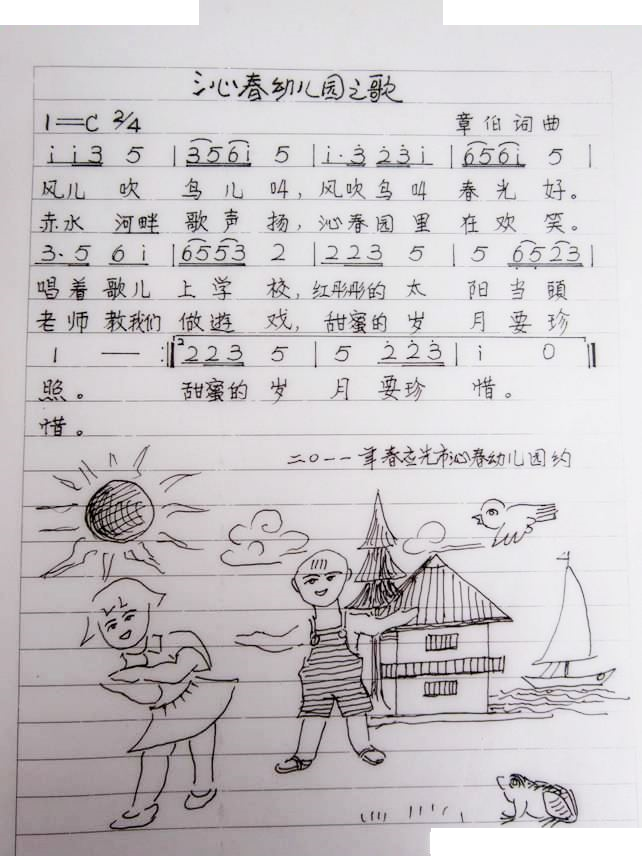 沁心春幼儿园之歌
1=C 2/4 章伯词曲
i i 3 5 | 3 5 6 i 5 | i · 3 2 3 i | 6 5 6 i 5 |
风儿 吹 鸟儿 叫，风吹鸟叫 春光 好。
赤水 河畔 歌声 扬，沁春园里 在欢 笑。
3· 5 6 i | 6 5 5 3 2 | 2 2 3 5 | 5 6 5 2 3 |
唱着 歌儿 上学 校，红彤彤的 太 阳 当頭
老师 教我们 做遊 戏，甜蜜的 岁 月 要珍
1 — :‖ 2 2 2 3 5 | 5 2 2 3 | i 0 ‖
照。 甜蜜的 岁 月 要珍 惜。
惜。
二〇一一年春应光市沁春幼儿园约